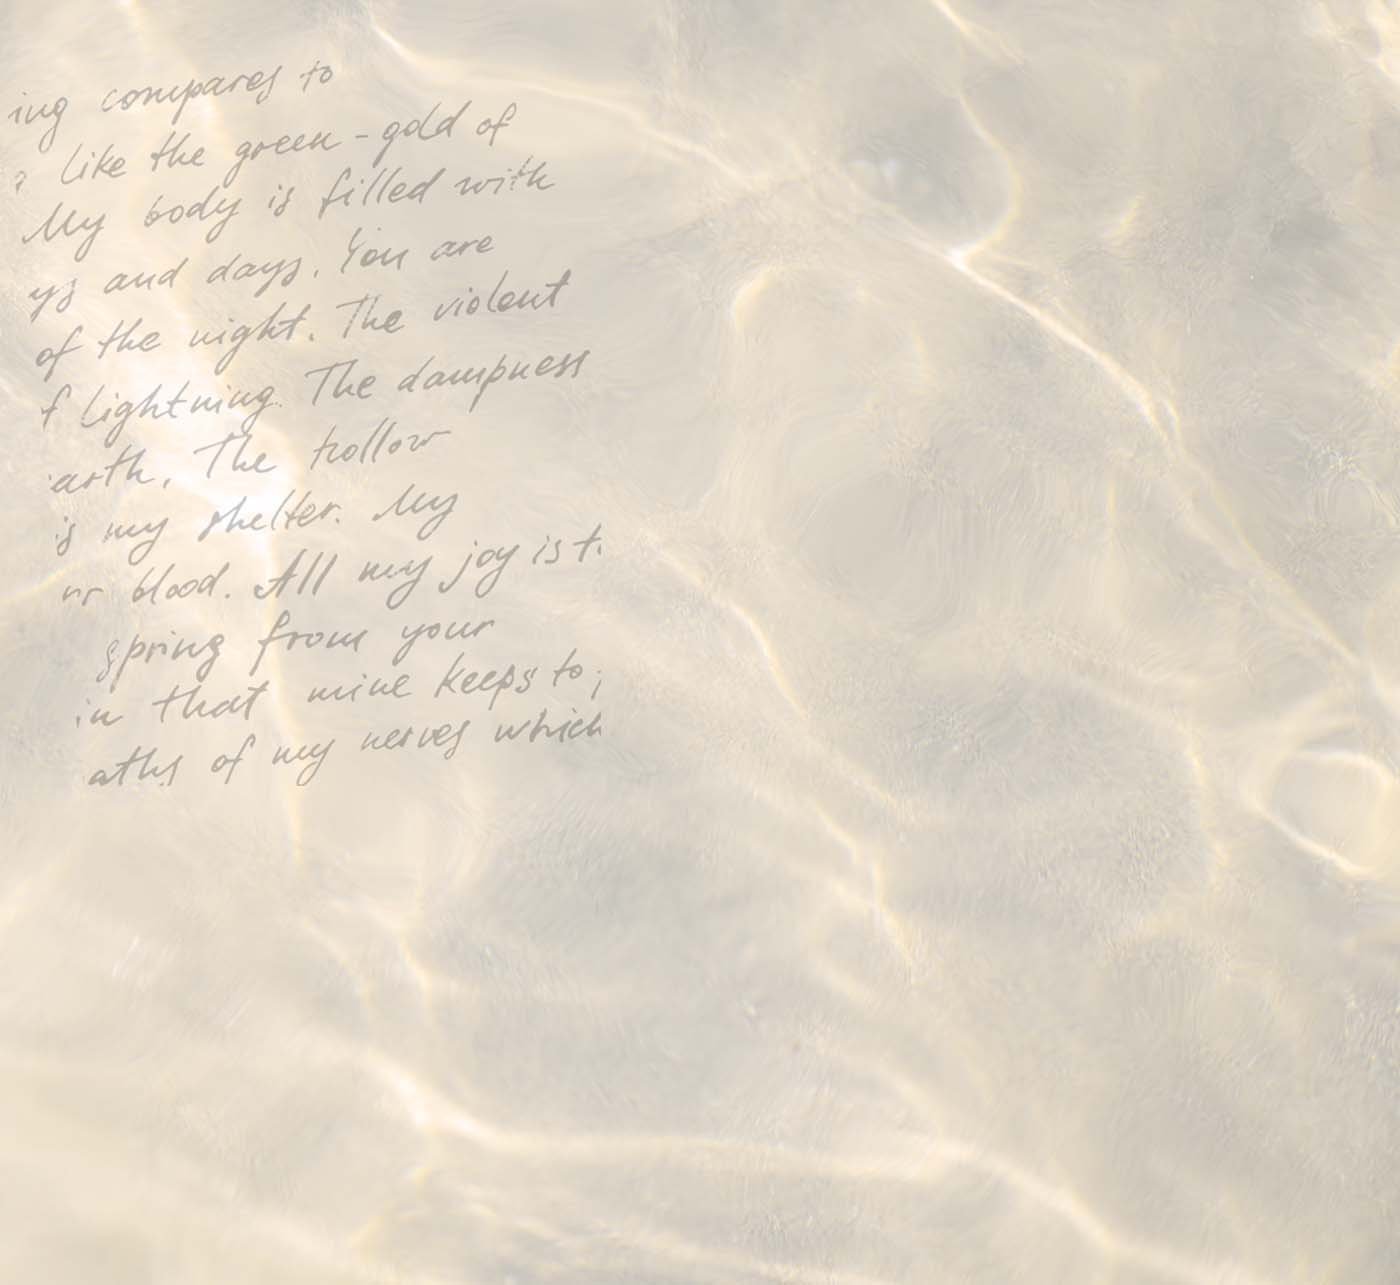 ing compares to
like the green-gold of
My body is filled with
ys and days. You are
of the night. The violent
f lightning. The dampness
arth. The hollow
is my shelter. My
ur blood. All my joy is t
spring from your
in that mine keeps to
aths of my nerves which